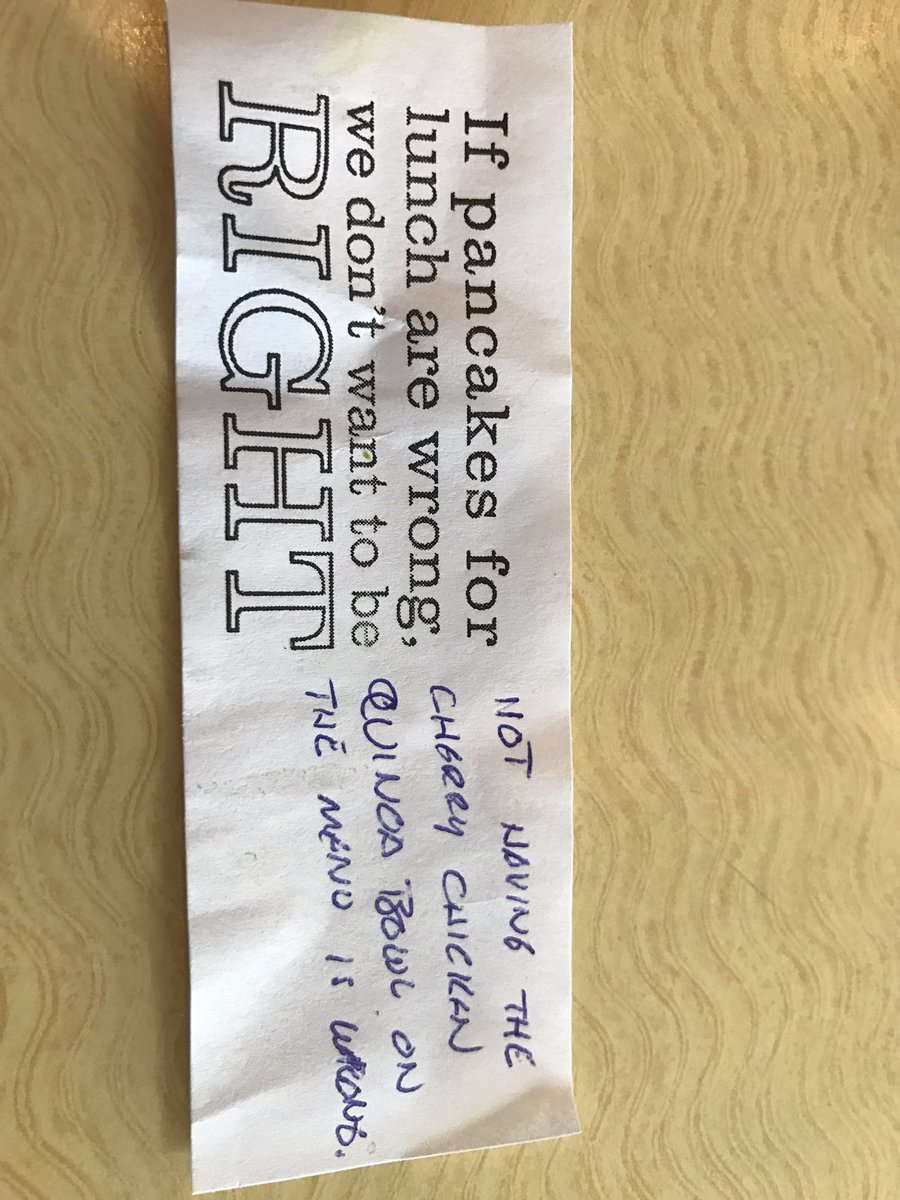 If pancakes for
lunch are wrong,
we don't want to be
RIGHT
NOT HAVING THE
CHERRY CHICKEN
QUINOA BOWL ON
THE MENU IS WRONG.